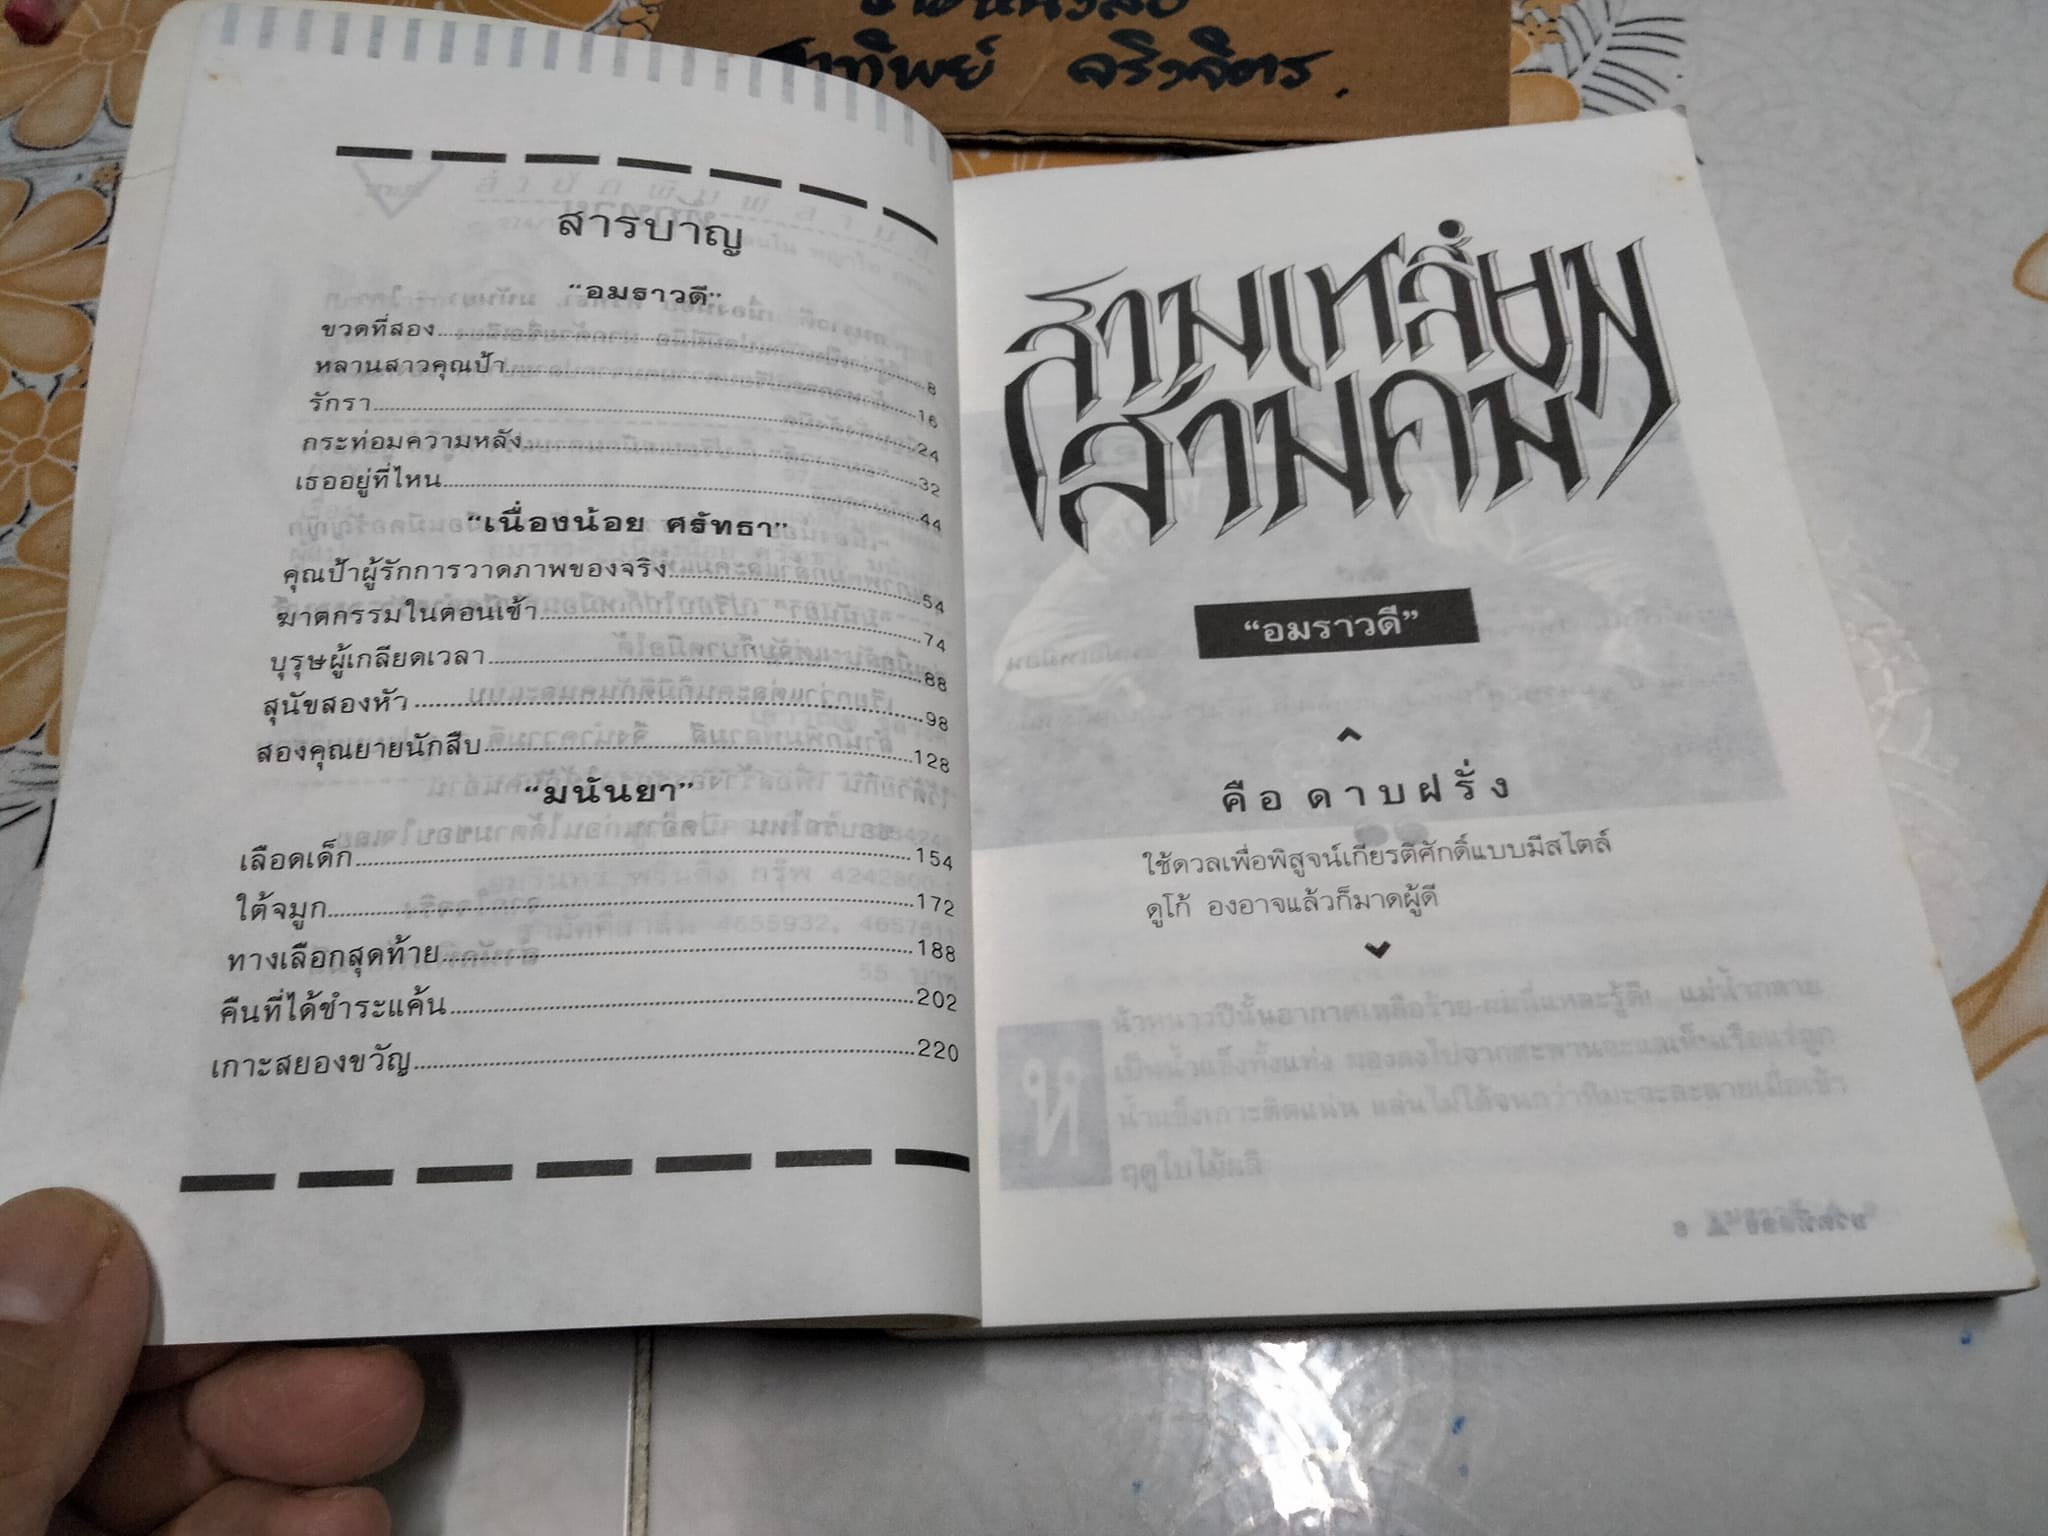 จริงจิตร.
สารบาญ
"อมราวดี"
ขวดที่สอง 8
หลานสาวคุณป้า 16
รักรา 24
กระท่อมความหลัง 32
เธออยู่ที่ไหน 44
"เนื่องน้อย ศรัทธา"
คุณป้าผู้รักการวาดภาพของจริง 54
ฆาตกรรมในตอนเช้า 74
บุรุษผู้เกลียดเวลา 88
สุนัขสองหัว 98
สองคุณยายนักสืบ 128
"มนันยา"
เลือดเด็ก 154
ใต้จมูก 172
ทางเลือกสุดท้าย 188
คืนที่ได้ชำระแค้น 202
เกาะสยองขวัญ 220
สามเหลี่ยม
สามคม
"อมราวดี"
คือดาบฝรั่ง
ใช้ดวลเพื่อพิสูจน์เกียรติศักดิ์แบบมีสไตล์
ดูโก้ องอาจแล้วก็มาดผู้ดี